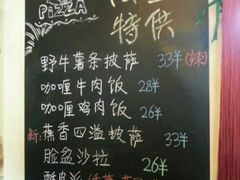 PIZZA
特供
野牛薯条披萨 33羊 (辣)
咖喱牛肉饭 28羊
咖喱鸡肉饭 26羊
新: 蕉香四溢披萨 33羊
脸盆沙拉 26羊